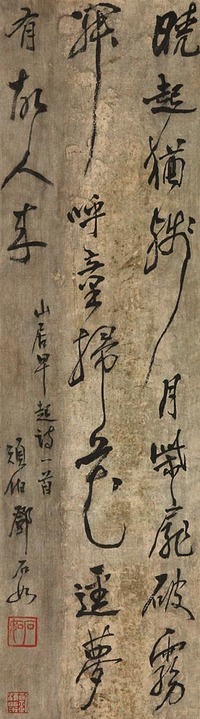 曉起猶殘月柴扉破霧
開呼童掃花逕夢
有故人來
山居早起詩一首
頑伯鄧石如